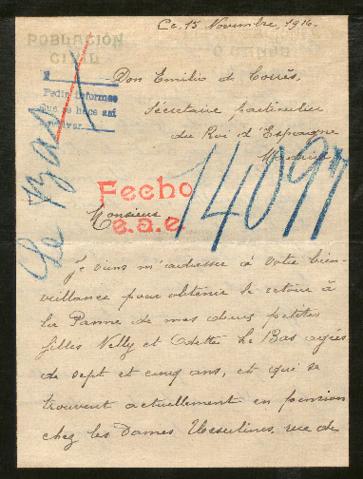 Ce. 15 Novembre, 1916.
POBLACIÓN
CIVIL
Don Emilio de Torrès,
Pedir informes
que se hace así
Sécrétaire particulier
du Roi d'Espagne
Madrid
Le Bas
Fecho
e.a.e.
14097
Monsieur,
Je viens m'adresser à votre bien-
veillance pour obtenir le retour à
la Panne de mes deux petites
filles Nelly et Odette Le Bas agées
de sept et cinq ans, et qui se
trouvent actuellement en pension
chez les Dames Ursulines, rue de